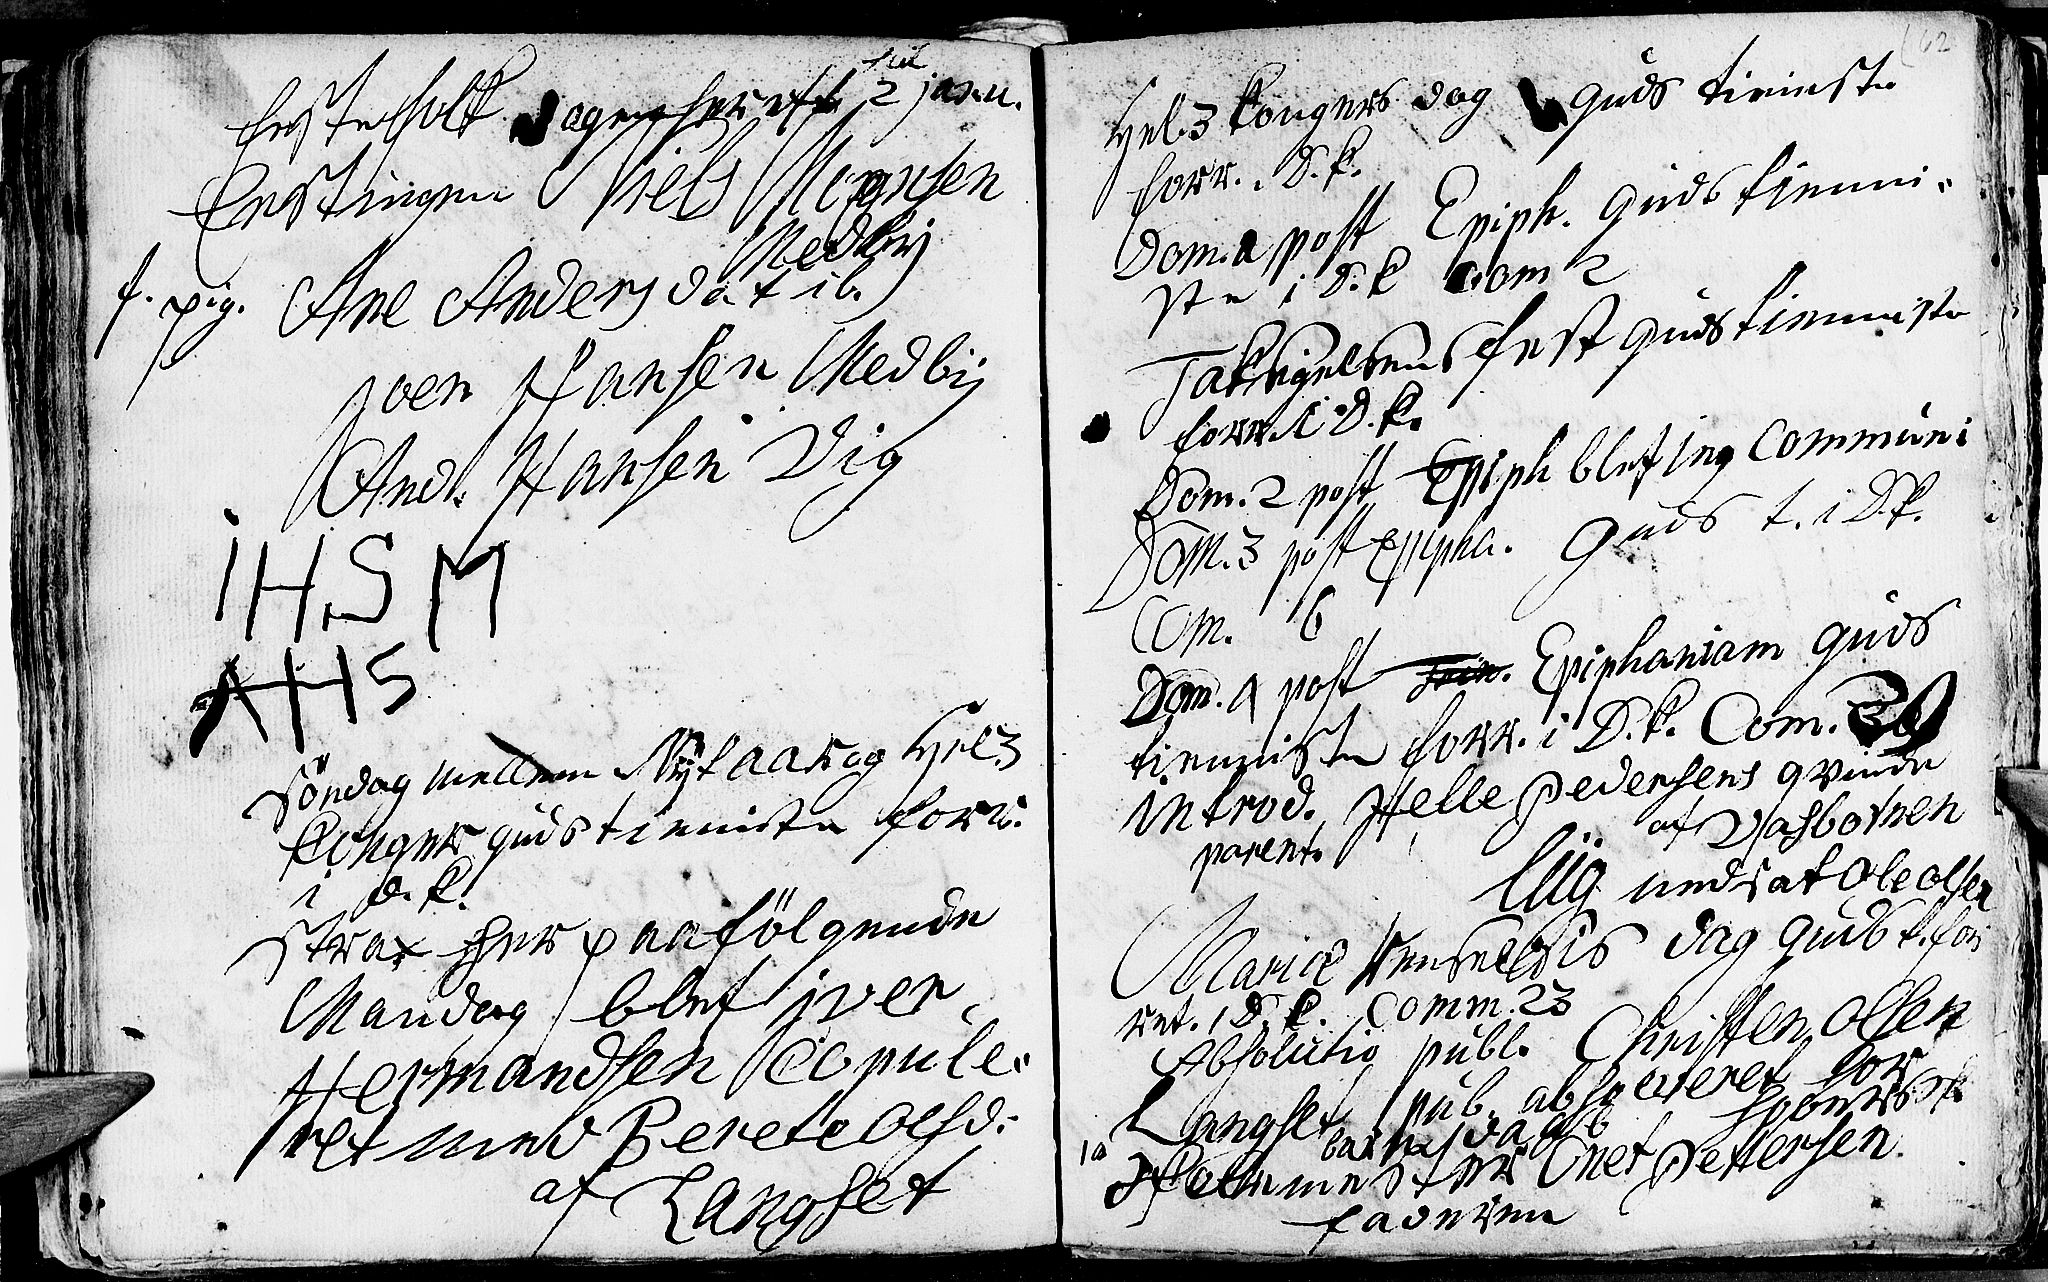 feste folk dagen her efter 2 janu.
festingen Niels Mognsen
Medbÿ
f. pig. Ane Andersdat ib.
joen Hansen Medbÿ
And. Hansen Vig
IHS M
AHS
Söndag mellem Nÿt aar og Hel 3
Konger guds tienniste forr.
i d. k.
Strax her paafölgende
Mandag blef iver
Hermandsen Copule-
ret med Berete olsd.
af Langset
62
Hel 3 kongers dag guds tienniste
forr. i D. k.
Dom. 1 post Epiph. guds tienni-
ste i D. k. Com 2
Taksigelsens fest guds tienniste
forr. i D. k.
Dom. 2 post Epiph blef ing Communi
Dom. 3 post Epipha. guds t. i D. k.
Com. 6
Dom. 4 post Epiphaniam guds
tienniste forr. i D. k. Com. 39
introd. Helle Pedersens qvinde
parent. af Vasbotnen
liig nedsat Ole olsen
Mariæ Renselsis dag guds t. for
ret. i D. k. Comm. 23
Absolutio publ. Christen Olsen
Langset pub. absolveret for
Onet Pettersen
faderen